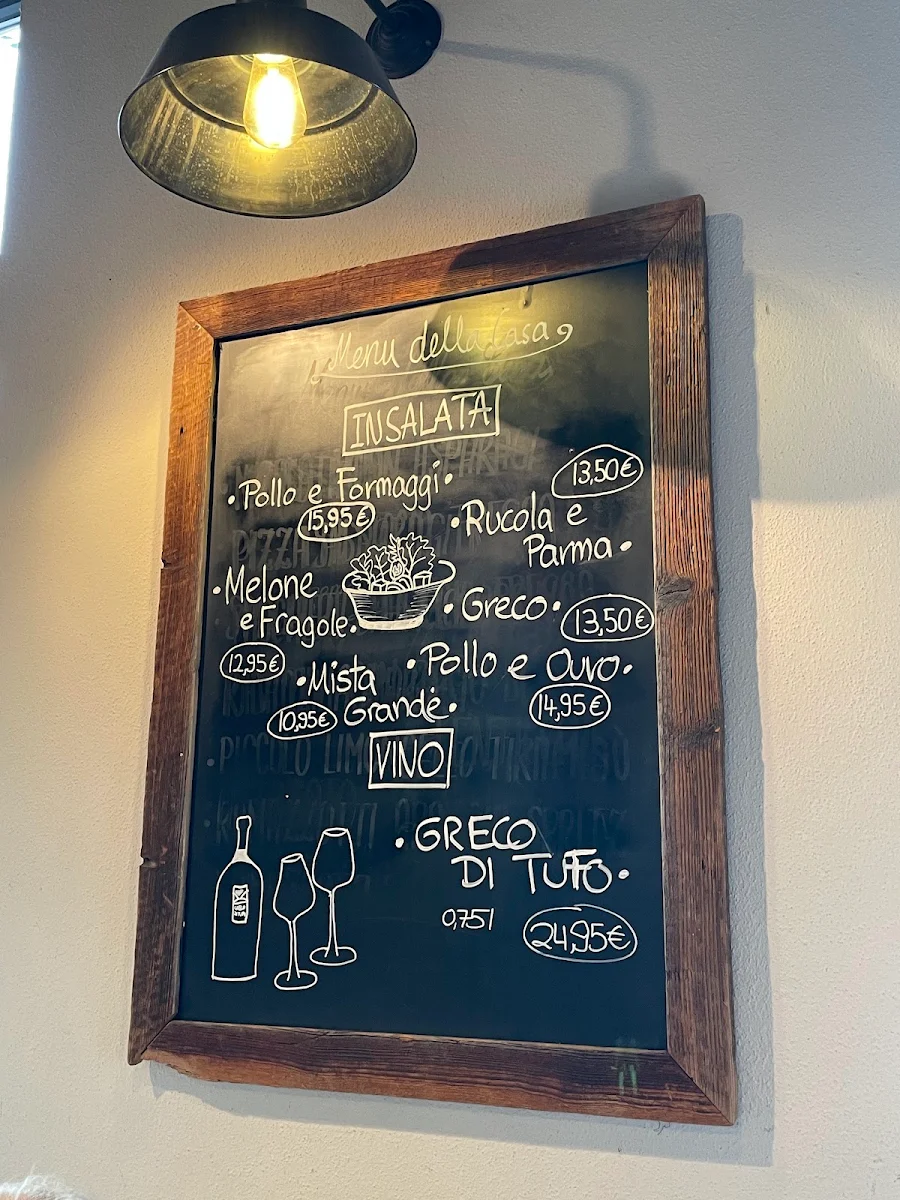 Menu della Casa
INSALATA
• Pollo e Formaggi •
15,95 €
13,50 €
• Rucola e
Parma •
• Melone
e Fragole •
12,95 €
• Greco •
13,50 €
• Mista
Grande •
10,95 €
• Pollo e Ouvo •
14,95 €
VINO
• GRECO
DI TUFO •
0,75 l
24,95 €